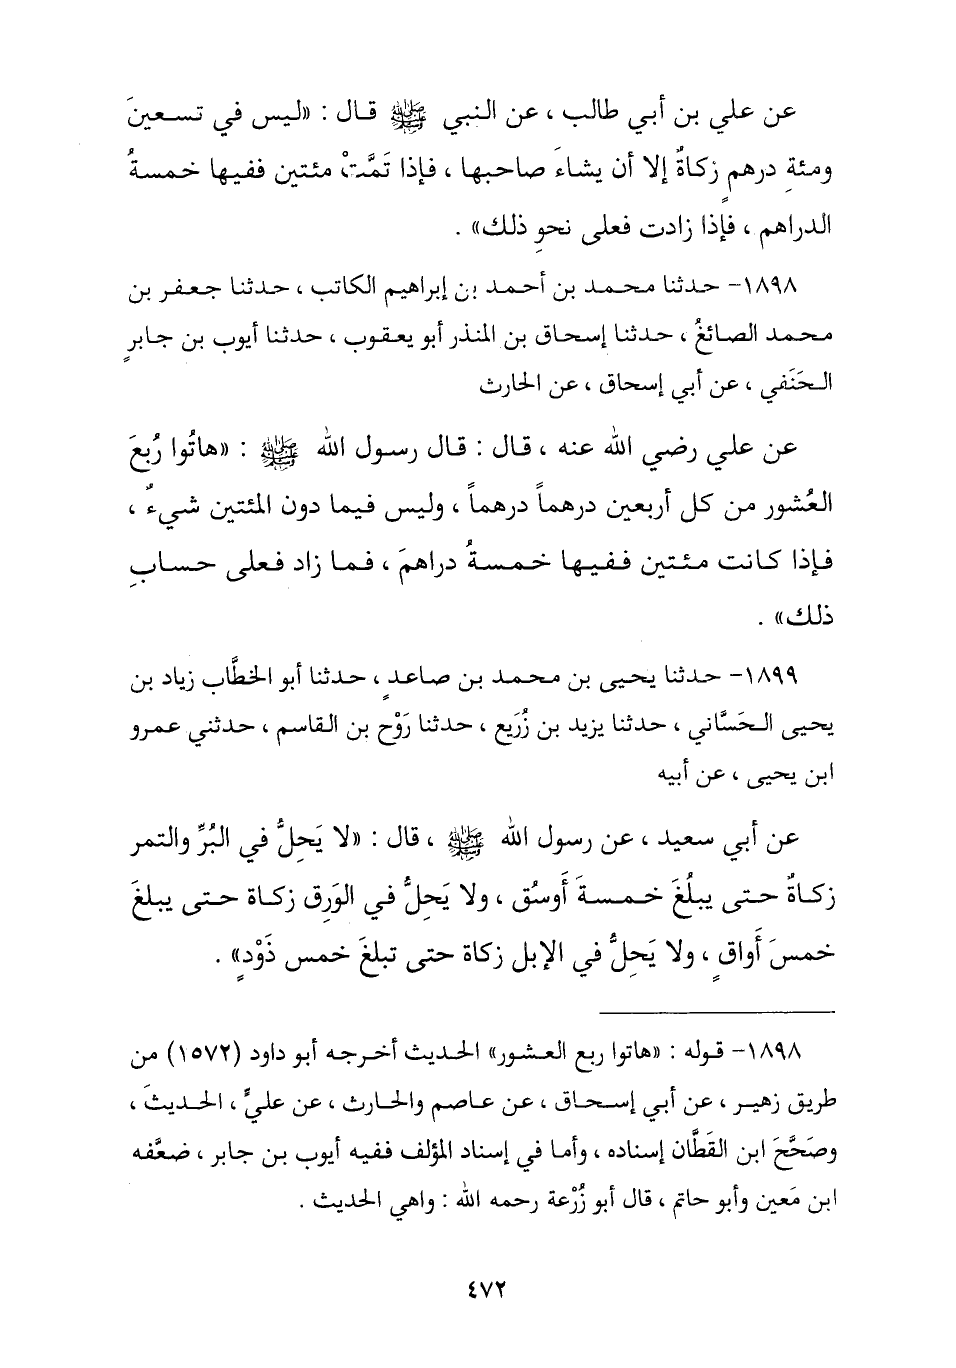 عن علي بن أبي طالب ، عن النبي ﷺ قال : «ليس في تسعينَ
ومئةِ درهمٍ زكاةٌ إلا أن يشاءَ صاحبها ، فإذا تَمَّتْ مئتين ففيها خمسةُ
الدراهم ، فإذا زادت فعلى نحوِ ذلك» .
١٨٩٨- حدثنا محمد بن أحمد بن إبراهيم الكاتب ، حدثنا جعفر بن
محمد الصائغُ ، حدثنا إسحاق بن المنذر أبو يعقوب ، حدثنا أيوب بن جابرٍ
الحَنَفي ، عن أبي إسحاق ، عن الحارث
عن علي رضي الله عنه ، قال : قال رسول الله ﷺ : «هاتُوا رُبعَ
العُشور من كل أربعين درهماً درهماً ، وليس فيما دون المئتين شيءٌ ،
فإذا كانت مئتين ففيها خمسةُ دراهمَ ، فما زاد فعلى حسابِ
ذلك» .
١٨٩٩- حدثنا يحيى بن محمد بن صاعدٍ ، حدثنا أبو الخطَّاب زياد بن
يحيى الحَسَّاني ، حدثنا يزيد بن زُرَيع ، حدثنا رَوْح بن القاسم ، حدثني عمرو
ابن يحيى ، عن أبيه
عن أبي سعيد ، عن رسول الله ﷺ ، قال : «لا يَحِلُّ في البُرِّ والتمر
زكاةٌ حتى يبلُغَ خمسةَ أَوسُق ، ولا يَحِلُّ في الوَرِق زكاة حتى يبلغَ
خمسَ أَواقٍ ، ولا يَحِلُّ في الإبل زكاة حتى تبلغَ خمس ذَوْدٍ» .
١٨٩٨- قوله : «هاتوا ربع العشور» الحديث أخرجه أبو داود (١٥٧٢) من
طريق زهير ، عن أبي إسحاق ، عن عاصم والحارث ، عن عليٍّ ، الحديثَ ،
وصَحَّحَ ابن القَطَّان إسناده ، وأما في إسناد المؤلف ففيه أيوب بن جابر ، ضعَّفه
ابن مَعين وأبو حاتم ، قال أبو زُرْعة رحمه الله : واهي الحديث .
٤٧٢